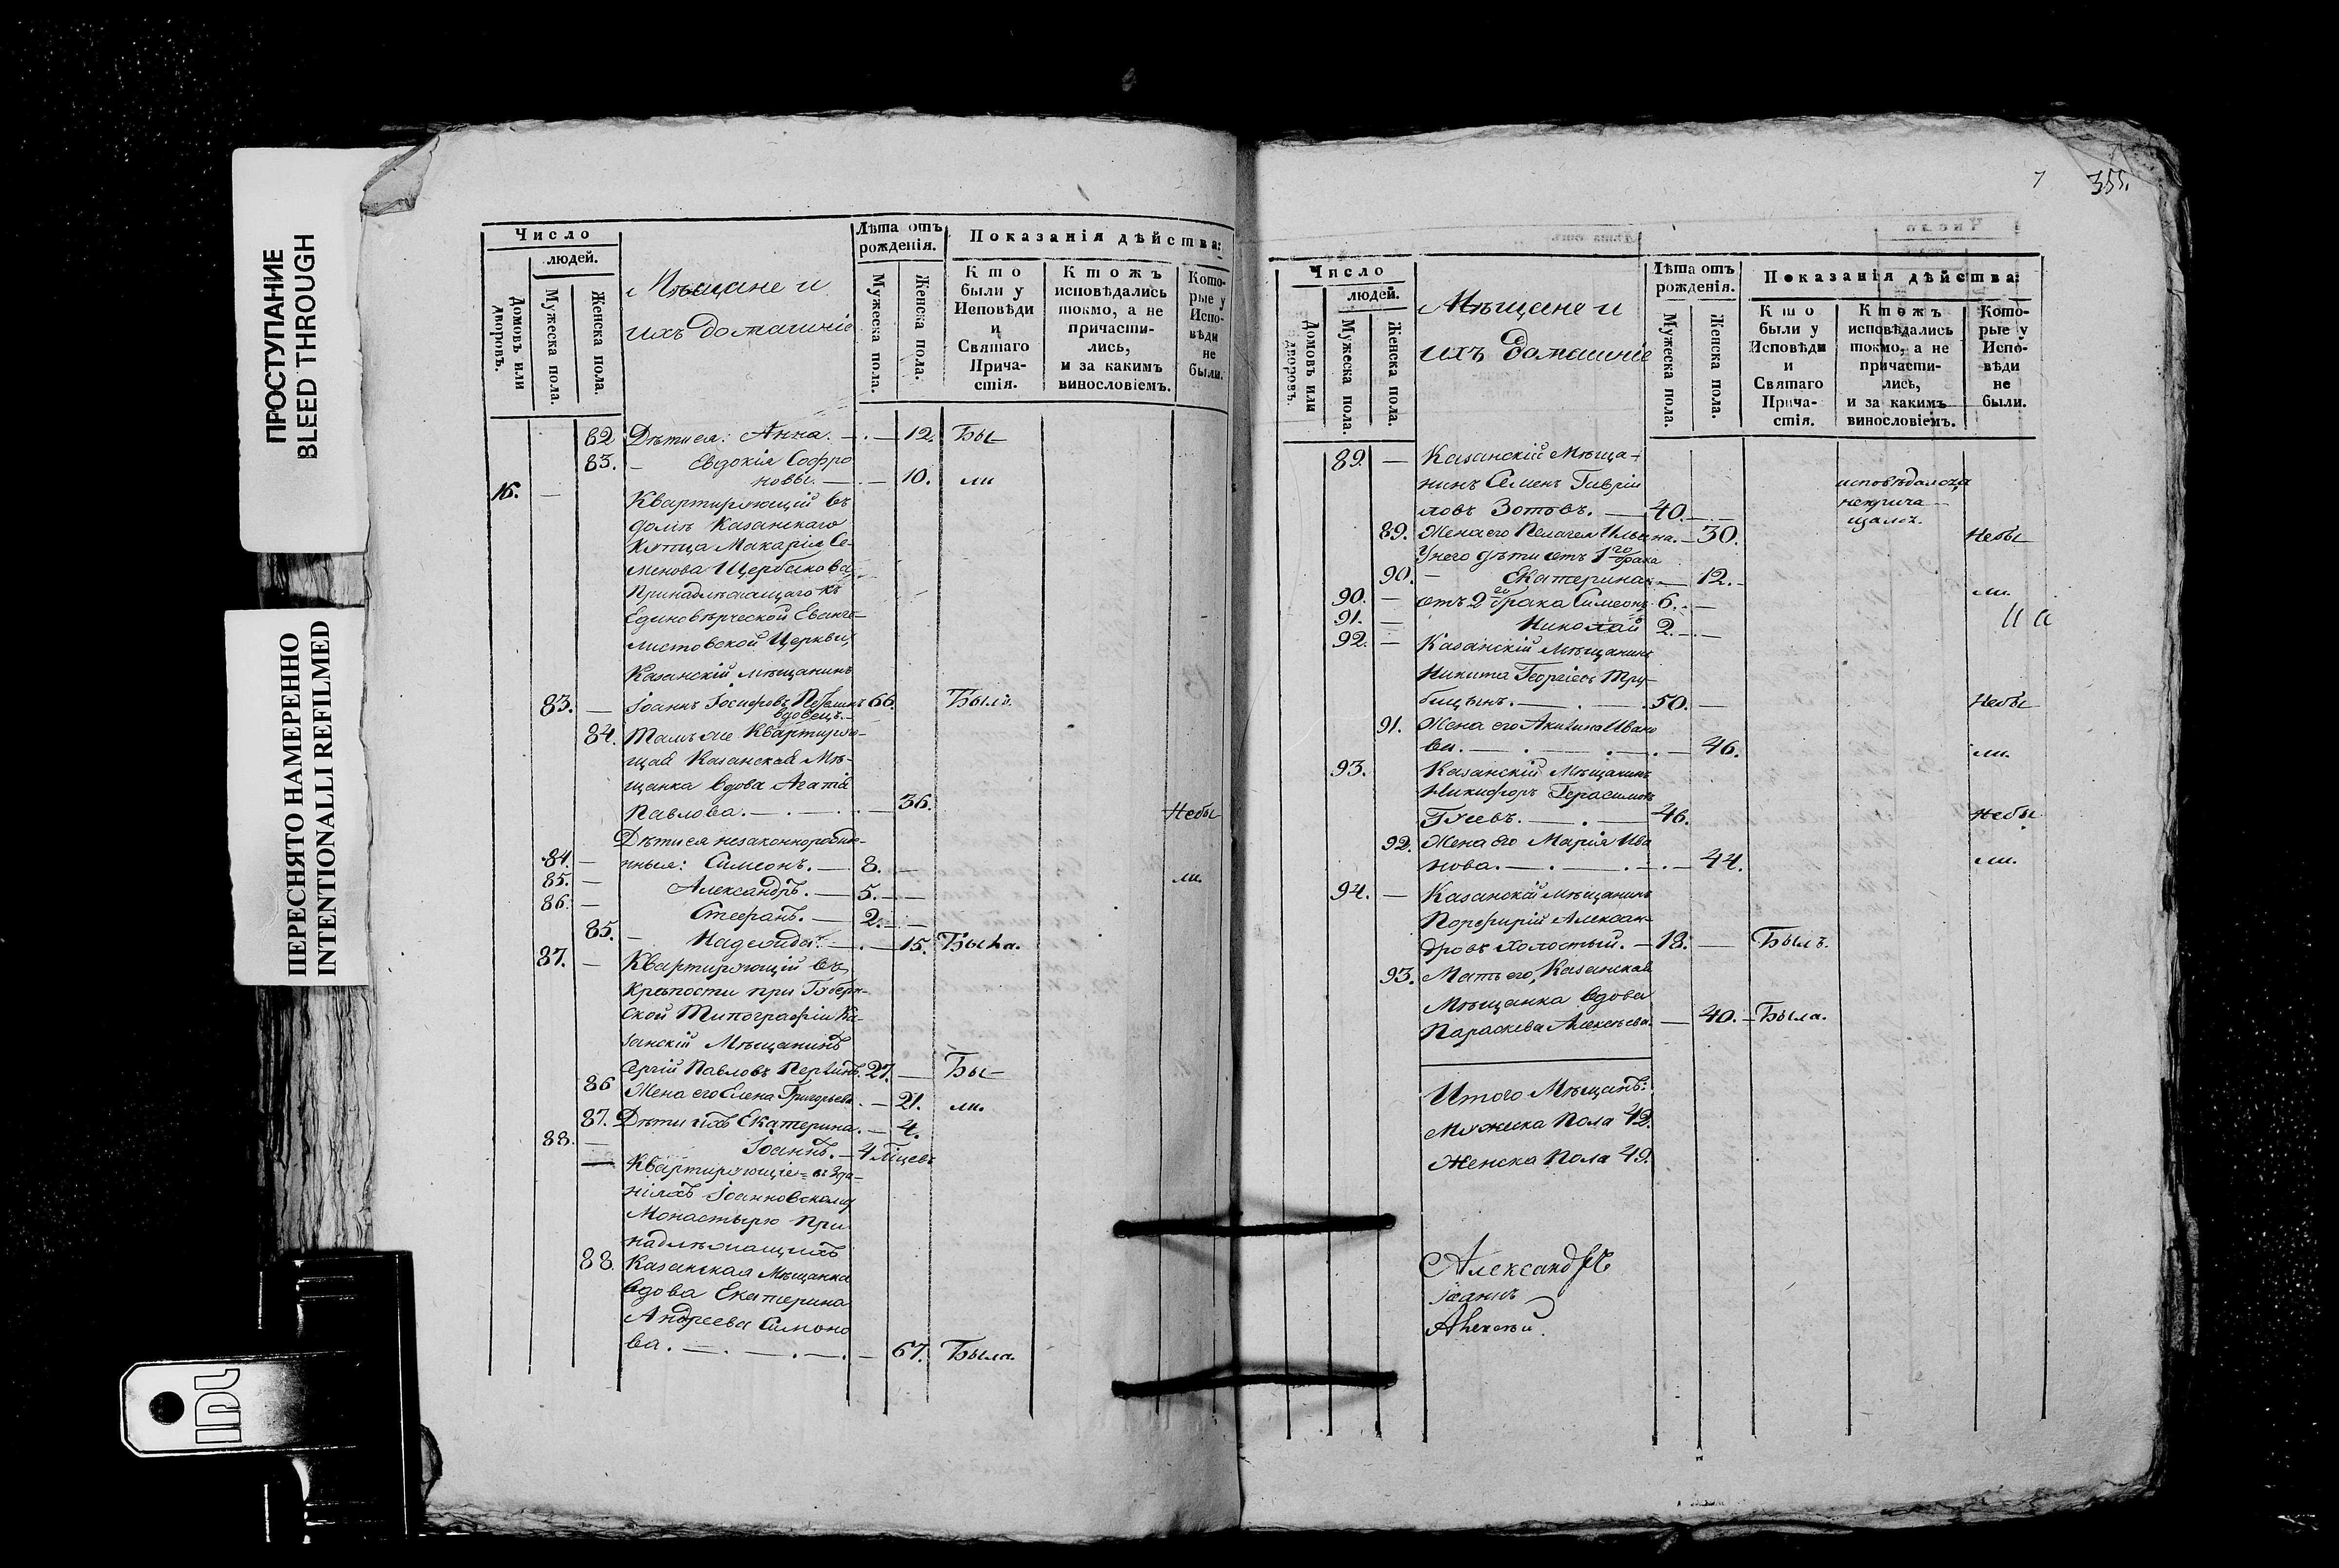 ПРОСТУПАНИЕ
BLEED THROUGH
ПЕРЕСНЯТО НАМЕРЕННО
INTENTIONALLI REFILMED
Число
людей.
Домовъ или дворовъ.
Мужеска пола.
Женска пола.
Мѣщане и
ихъ домашніе
Лѣта отъ рожденія.
Мужеска пола.
Женска пола.
Показанія дѣйства:
Кто были у Исповѣди и Святаго Прича-стія.
Ктожъ исповѣдались токмо, а не причасти-лись, и за какимъ винословіемъ.
Кото-рые у Испо-вѣди не были.
82 Дѣти ея: Анна. — 12. Бы-
83. — Евдокія Софро
новы. — 10. ли
16. — Квартирующій въ
домѣ Казанскаго
Купца Макарія Се-
менова Щербакова,
Принадлежащаго къ
Единовѣрческой Еванге-
листовской Церкви,
Казанскій мѣщанинъ
83. — Іоаннъ Іосифовъ 66. Былъ.
вдовецъ.
84. Тамъ же Квартирую-
щая Казанская Мѣ-
щанка вдова Агатія
Павлова. — 36. Небы
Дѣти ея незаконнорожде-
84. — нныя: Симеонъ. — 8. —
85. — Александръ. — 5. — ли.
86. — Стефанъ. — 2. —
85. — Надежда. — 15. Была.
87. — Квартирующій въ
Крѣпости при Губерн-
ской Типографіи Ка-
занскій Мѣщанинъ
Сергій Павловъ 27. — Бы-
86 Жена его Елена Григорьева. — 21. ли.
87. Дѣти ихъ Екатерина. — 4.
88. — Іоаннъ. — 4 мѣсецъ
Квартирующіе въ Зда-
ніяхъ Іоанновскому
Монастырю При
надлежащихъ
88. Казанская Мѣщанка
вдова Екатерина
Андреева Симоно
ва. — 67. Была.
7 355.
Число
людей.
Домовъ или дворовъ.
Мужеска пола.
Женска пола.
Мѣщане и
ихъ домашніе
Лѣта отъ рожденія.
Мужеска пола.
Женска пола.
Показанія дѣйства:
Кто были у Исповѣди и Святаго Прича-стія.
Ктожъ исповѣдались токмо, а не причасти-лись, и за какимъ винословіемъ.
Кото-рые у Испо-вѣди не были.
89. — Казанскій Мѣща-
нинъ Семенъ Гаврии
ловъ Зотовъ. — 40. — исповѣдался, неприча-щался.
89. Жена его Пелагея Ильина. — 30. Небы
У него дѣти отъ 1го брака
90. — Екатерина — 12. —
90. — отъ 2го брака Симеонъ 6. — ли.
91. — Николай 2. —
92. — Казанскій мѣщанинъ
Никита Георгіевъ Тру-
бицынъ. — 50. — Небы
91. Жена его Акилина Ивано
ва. — 46. ли.
93. Казанскій Мѣщанинъ
Никифоръ Герасимовъ
Гусевъ. — 46. Небы
92. Жена его Марія Ива
нова. — 44. ли.
94. — Казанскій мѣщанинъ
Порфирій Алексан-
дровъ холостый. — 18. — Былъ.
93. Мать его, Казанская
Мѣщанка вдова
Параскева Алексѣева. — 40. — Была.
Итого Мѣщанъ:
Мужеска Пола 42.
Женска Пола 49.
Александръ
Іоаннъ
Алексѣй.